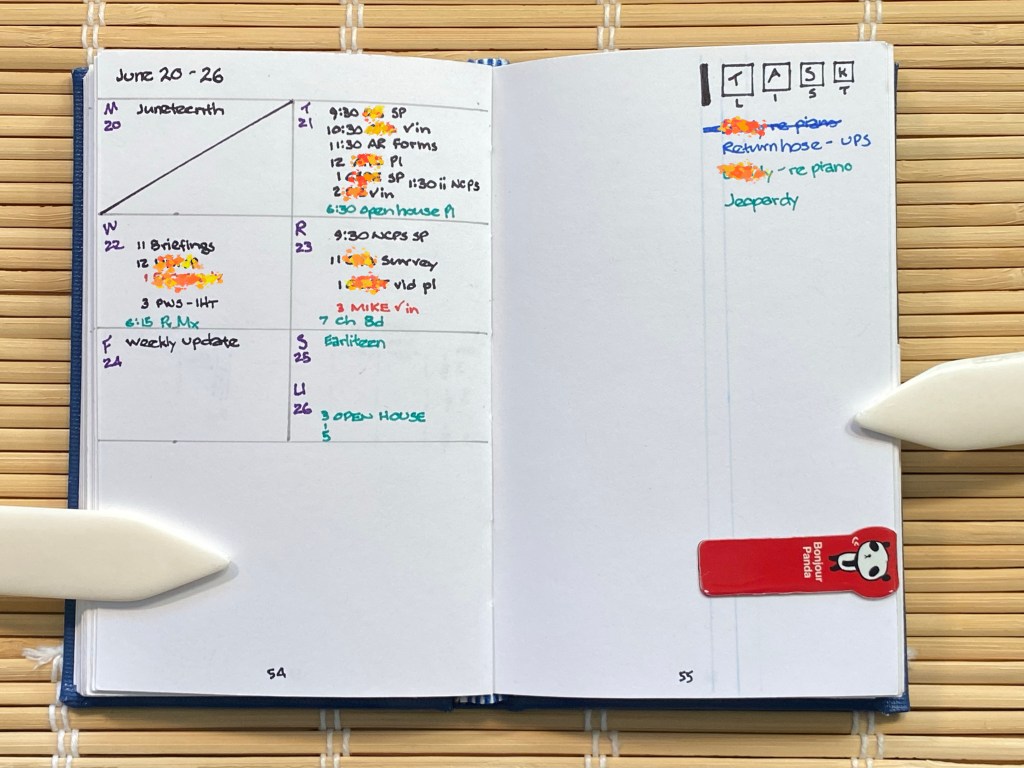 June 20 - 26
M
20
Juneteenth
T
21
9:30 SP
10:30 Vin
11:30 AR Forms
12 Pl
1 SP 1:30 ii NCPS
2 Vin
6:30 open house Pl
W
22
11 Briefings
12
1
3 PWS - IHT
6:15 Pr Mx
R
23
9:30 NCPS SP
11 Survey
1 vid pl
3 MIKE Vin
7 Ch Bd
F
24
weekly update
S
25
Earliteen
U
26
3 OPEN HOUSE
5
54
T A S K
L I S T
re piano
Return hose - UPS
- re piano
Jeopardy
Bonjour
Panda
55